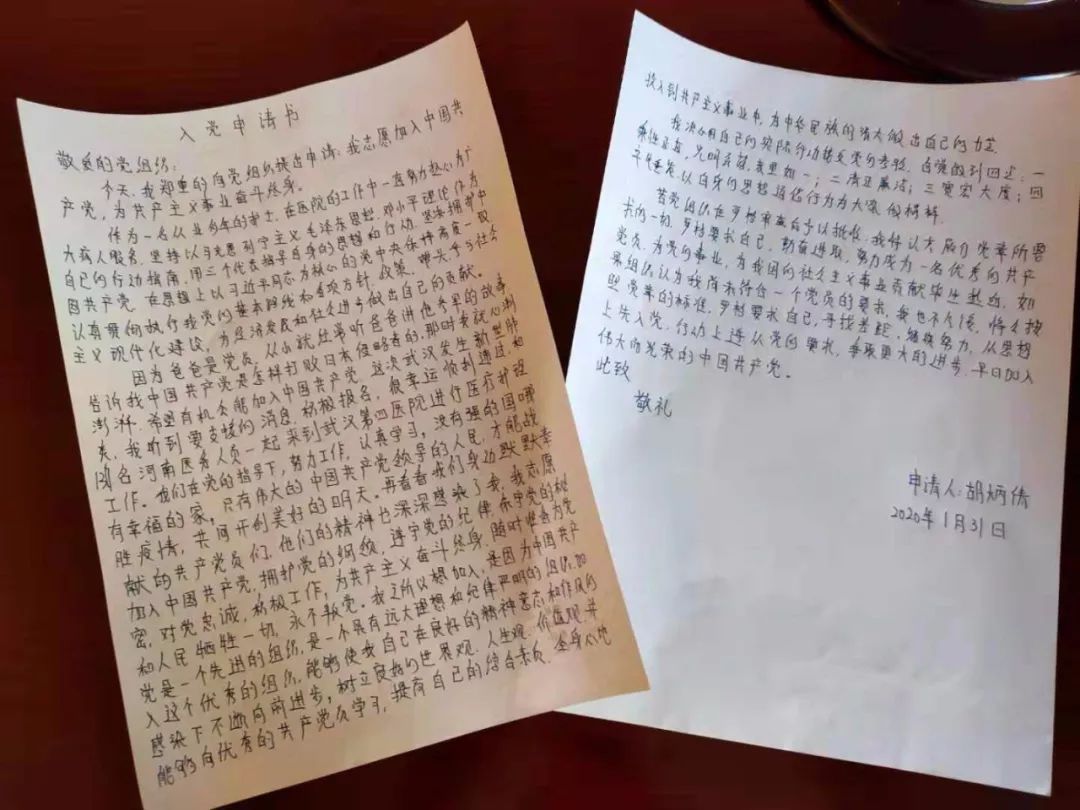 入党申请书
敬爱的党组织:
今天,我郑重的向党组织提出申请:我志愿加入中国共
产党,为共产主义事业奋斗终身。
作为一名从业多年的护士,在医院的工作中一直努力热心为广
大病人服务,坚持以马克思列宁主义、毛泽东思想、邓小平理论作为
自己的行动指南,用三个代表指导自身的思想和行动。坚决拥护中
国共产党,在思想上以习近平同志为核心的党中央保持高度一致,
认真贯彻执行我党的基本路线和各项方针、政策,带头参与社会
主义现代化建设,为经济发展和社会进步做出自己的贡献。
因为爸爸是党员,从小就经常听爸爸讲他参军的故事
告诉我中国共产党是怎样打败日本侵略者的,那时来说心潮
澎湃,希望有机会能加入中国共产党。这次武汉发生新型肺
炎,我听到要支援的消息,积极报名,很幸运顺利通过,和
名河南医务人员一起来到武汉第四医院进行医疗护理
工作。我们在党的指导下,努力工作,认真学习,没有强的国哪
有幸福的家,只有伟大的中国共产党领导的人民,才能战
胜疫情,共同开创美好的明天。再看看我们身边默默奉
献的共产党员们,他们的精神也深深感染了我,我志愿
加入中国共产党,拥护党的纲领,遵守党的纪律,保守党的秘
密,对党忠诚,积极工作,为共产主义奋斗终身,随时准备为党
和人民牺牲一切,永不叛党。我之所以想加入,是因为中国共产
党是一个先进的组织,是一个具有远大理想和纪律严明的组织,加
入这个优秀的组织,能够使我自己在良好的精神意志和作风的
感染下不断向前进步,树立良好的世界观、人生观、价值观,并
能够向优秀的共产党员学习,提高自己的综合素质,全身心地
投入到共产主义事业中,为中华民族的强大做出自己的力量。
我决心用自己的实际行动接受党的考验,自觉做到四点:一
秉性正直,光明磊落,表里如一;二清正廉洁;三宽宏大度;四
以自身的思想道德行为为大家做榜样。
若党组织在考察审查后予以批准,我将认真履行党章所要
求的一切,严格要求自己,勤奋进取,努力成为一名优秀的共产
党员,为党的事业,为我国的社会主义事业贡献毕生精力。如
果组织认为我尚未符合一个党员的要求,我也不气馁,将会按
照党章的标准,严格要求自己,寻找差距,继续努力,从思想
上先入党,行动上遵从党的要求,争取更大的进步,早日加入
伟大而光荣的中国共产党。
此致
敬礼
申请人:胡炳倩
2020年1月31日